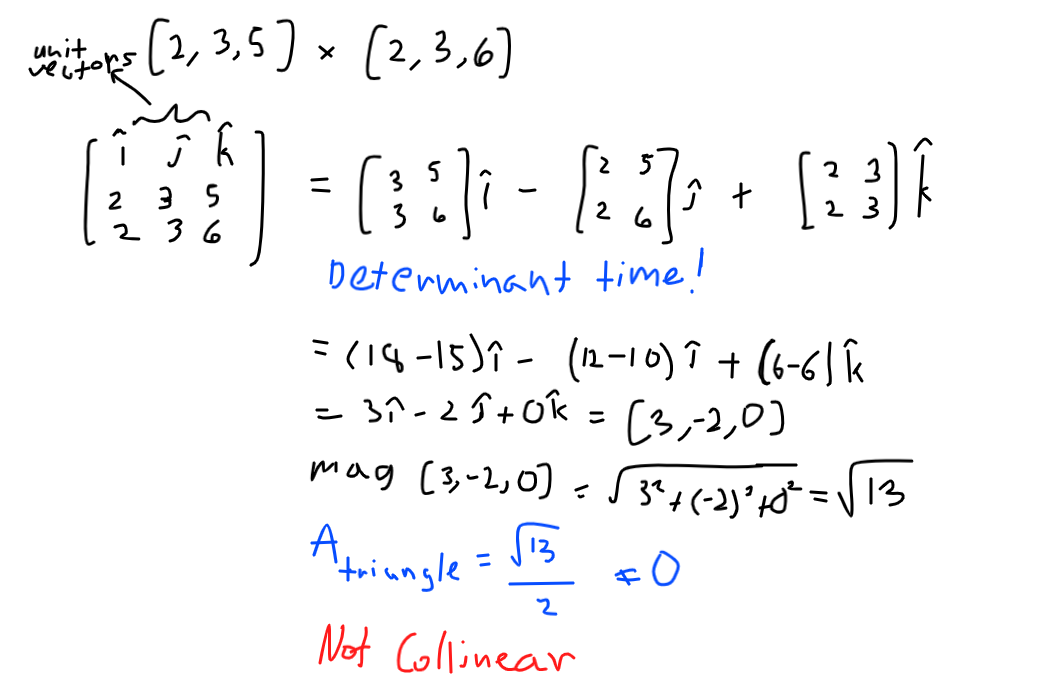 unit vectors [2, 3, 5] × [2, 3, 6]
[î ĵ k̂
2 3 5
2 3 6] = [3 5
3 6] î − [2 5
2 6] ĵ + [2 3
2 3] k̂
Determinant time!
= (18 − 15) î − (12 − 10) î + (6 − 6) k̂
= 3î − 2ĵ + 0k̂ = [3, −2, 0]
mag [3, −2, 0] = √(3² + (−2)² + 0²) = √13
A triangle = √13/2 ≠ 0
Not Collinear